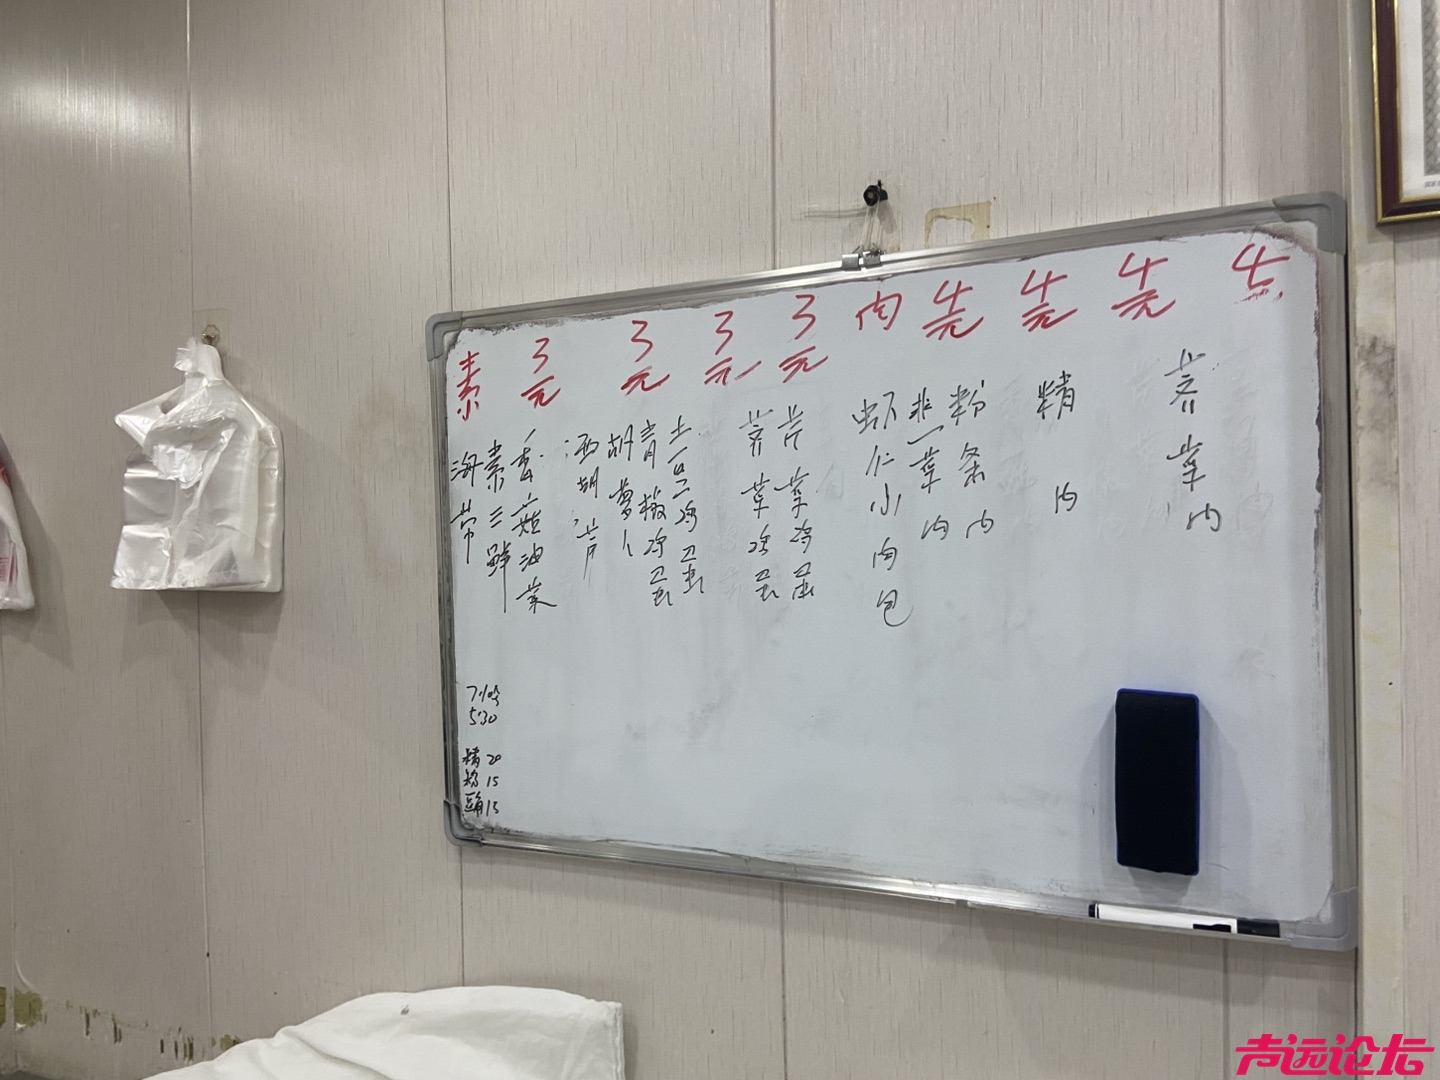 素
3元
3元
3元
3元
肉
4元
4元
4元
4元
海带
素三鲜
香菇油菜
西胡
胡萝卜
青椒鸡蛋
土豆鸡蛋
荠菜鸡蛋
芹菜鸡蛋
虾仁小肉包
韭菜肉
粉条肉
精肉
荠菜肉
5:30
精 20
15
豆角 15
声远论坛